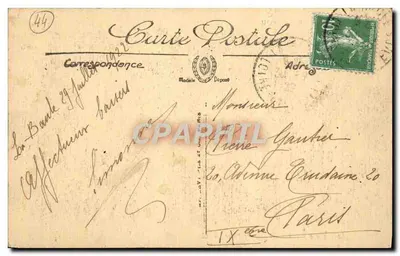 44
Carte Postale
Correspondance
Modèle Déposé
POSTES
La Baule 29 Juillet 1922
Affectueux baisers
Simone
Monsieur
Pierre Gautier
20, Avenue Trudaine, 20
Paris
IX ème